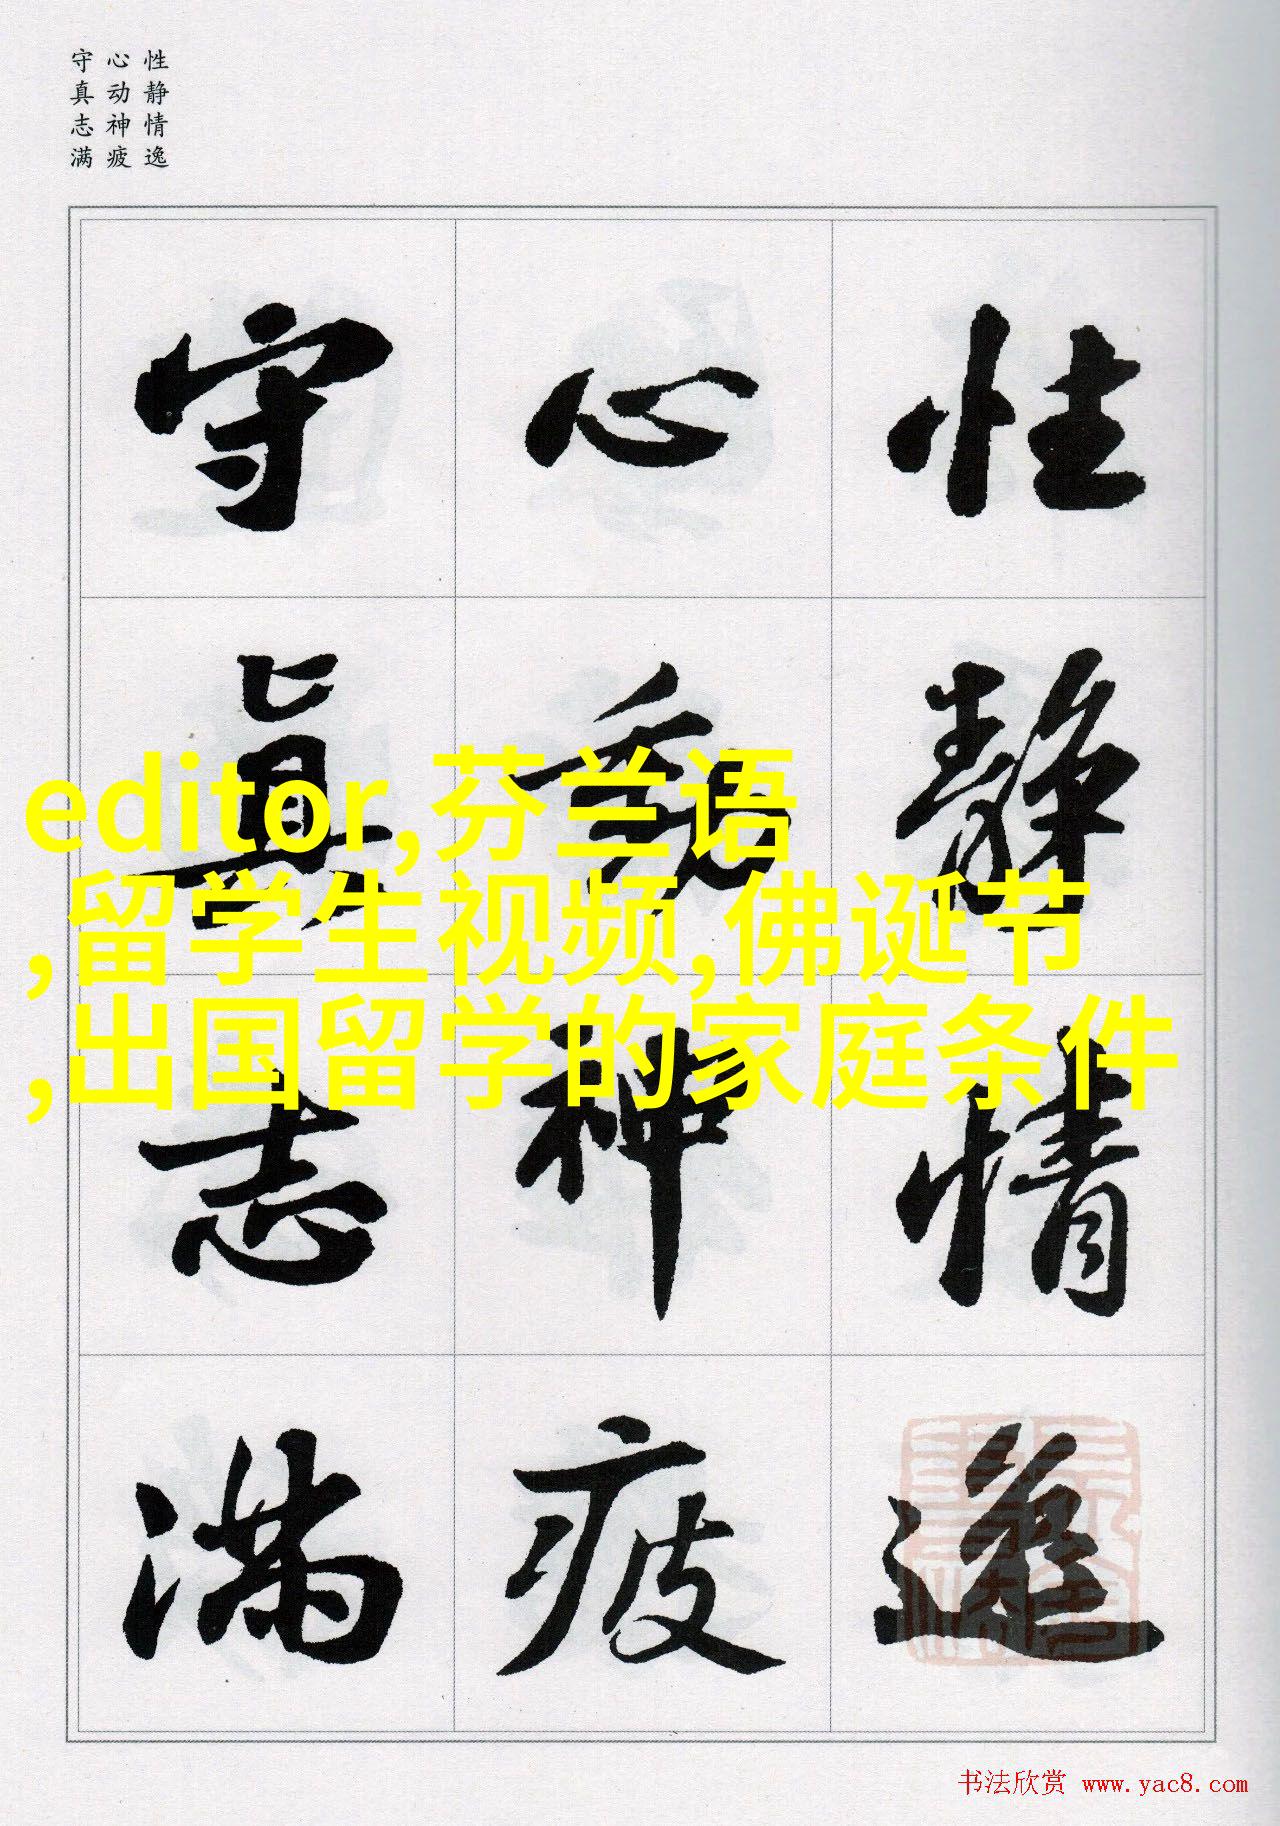 性静情逸
心动神疲
守真志满
性静情逸
心動神疲
守真志满
editor,芬兰语
,留学生视频,佛诞节
,出国留学的家庭条件
书法欣赏 www.yac8.com